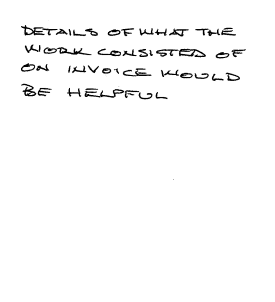 DETAILS OF WHAT THE
WORK CONSISTED OF
ON INVOICE WOULD
BE HELPFUL